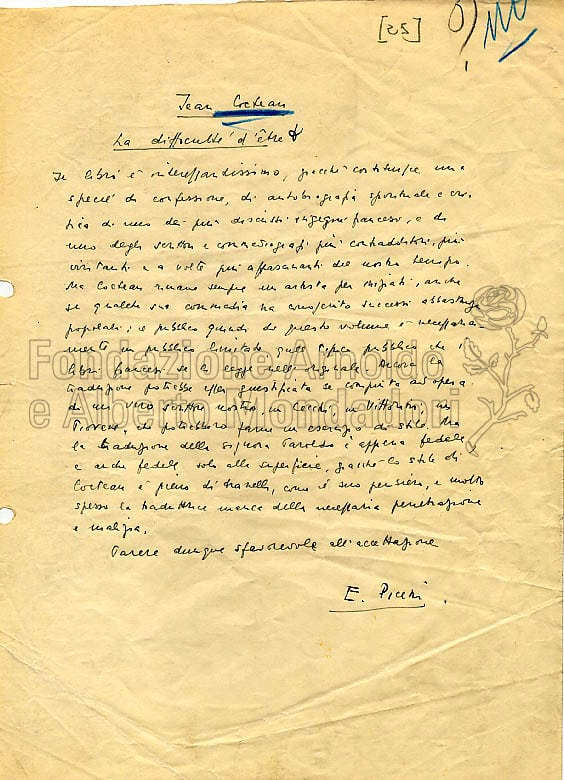 [25]
Jean Cocteau
La difficulté d'être
Il libro è interessantissimo, giacché costituisce una
specie di confessione, di autobiografia spirituale e cri-
tica di uno dei più discussi ingegni francesi, e di
uno degli scrittori e commediografi più contraddittori, più
irritanti e a volte più affascinanti del nostro tempo.
Ma Cocteau rimane sempre un artista per iniziati, anche
se qualche sua commedia ha conosciuto successi abbastanza
popolari; il pubblico quindi di questo volume è necessaria-
mente un pubblico limitato, quel tipico pubblico che i
libri francesi se li legge nell'originale. Ancora la
traduzione potrebbe esser giustificata se compiuta ad opera
di un vero scrittore nostro, un Cecchi, un Vittorini, un
Piovene, che potrebbero farne un esercizio di stile. Ma
la traduzione della signora è appena fedele
e anche fedele solo alla superficie, giacché lo stile di
Cocteau è pieno di tranelli, come il suo pensiero, e molto
spesso la traduttrice manca della necessaria penetrazione
e malizia.
Parere dunque sfavorevole all'accettazione
E. Piceni.
Fondazione Arnoldo
e Alberto Mondadori